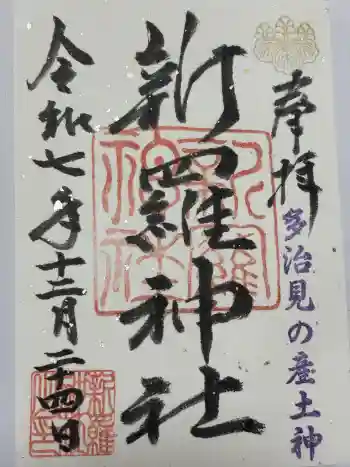 奉拝
多治見の産土神
新羅神社
令和七年十二月二十四日